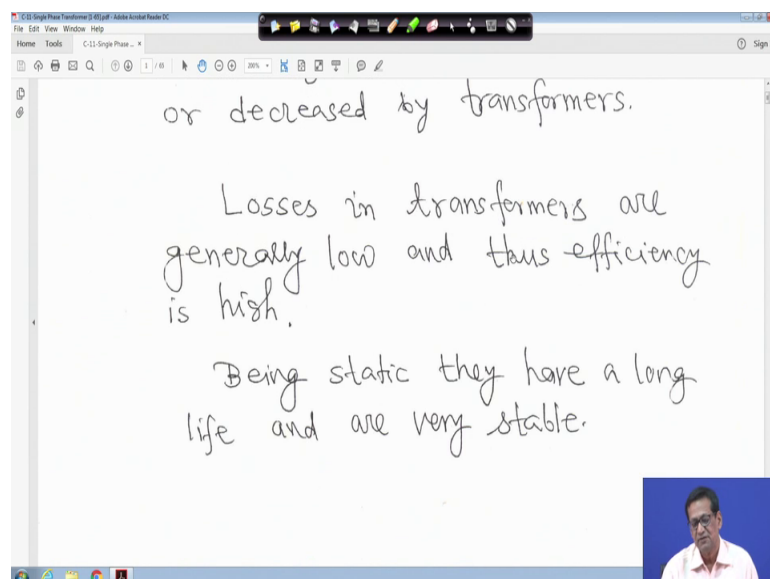 C-11-Single Phase Transformer [1-65].pdf - Adobe Acrobat Reader DC
File Edit View Window Help
Home Tools C-11-Single Phase ... × Sign
1 / 65 200%
or decreased by transformers.
Losses in transformers are
generally low and thus efficiency
is high.
Being static they have a long
life and are very stable.